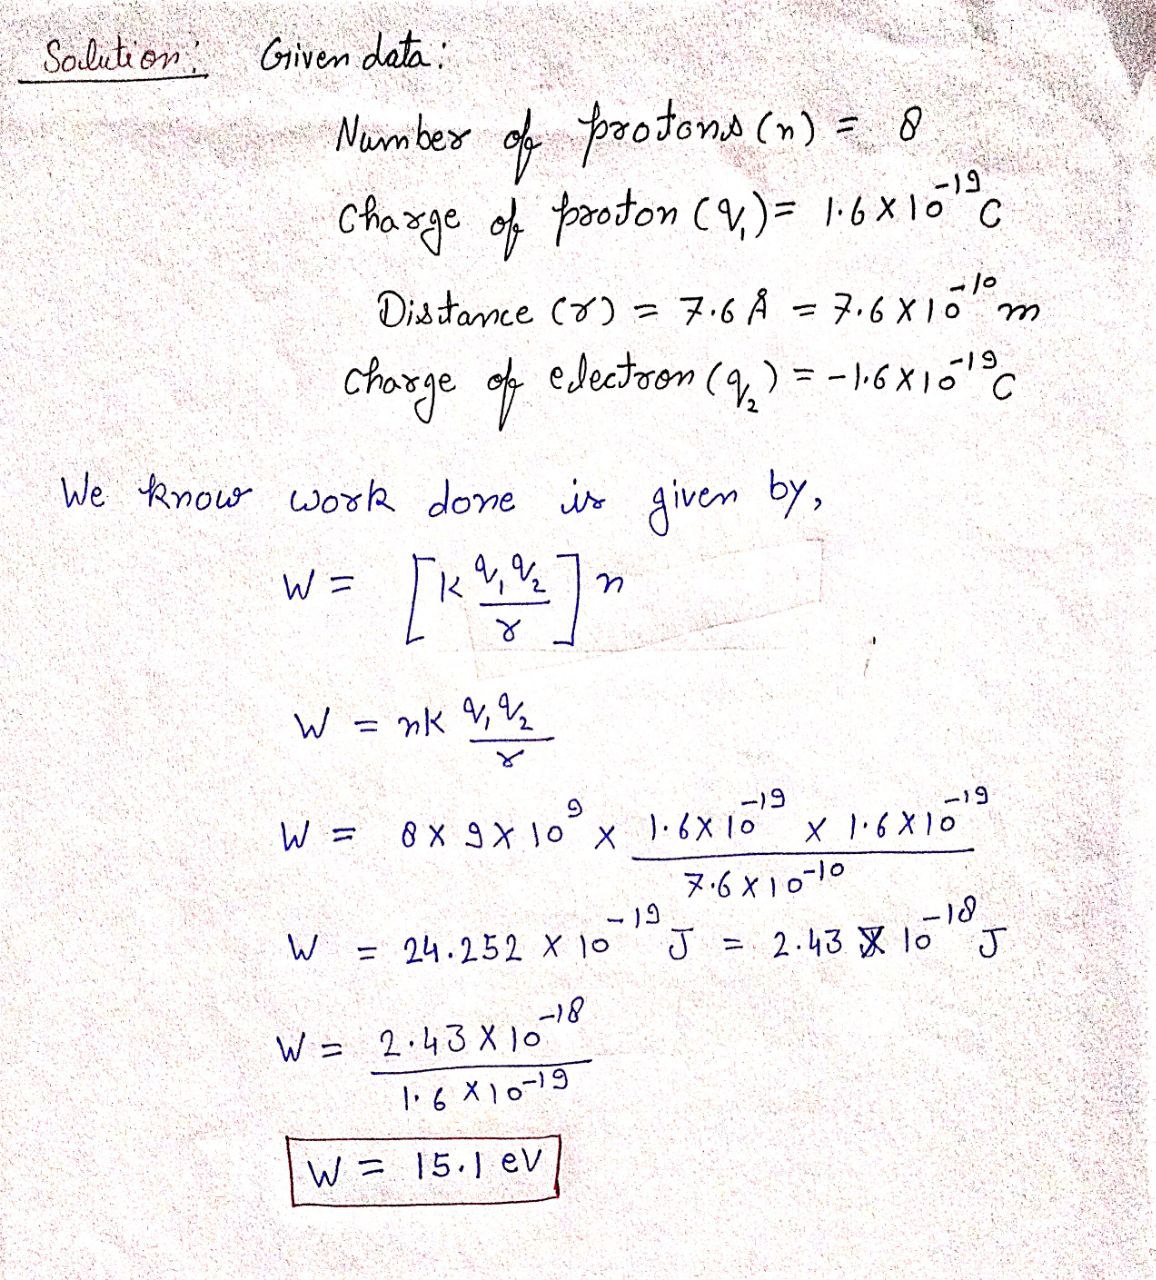 Solution: Given data:
Number of protons (n) = 8
Charge of proton (q₁) = 1.6 × 10⁻¹⁹ C
Distance (r) = 7.6 Å = 7.6 × 10⁻¹⁰ m
Charge of electron (q₂) = -1.6 × 10⁻¹⁹ C
We know work done is given by,
W = [k q₁q₂/r] n
W = nk q₁q₂/r
W = 8 × 9 × 10⁹ × 1.6 × 10⁻¹⁹ × 1.6 × 10⁻¹⁹ / 7.6 × 10⁻¹⁰
W = 24.252 × 10⁻¹⁹ J = 2.43 × 10⁻¹⁸ J
W = 2.43 × 10⁻¹⁸ / 1.6 × 10⁻¹⁹
W = 15.1 eV